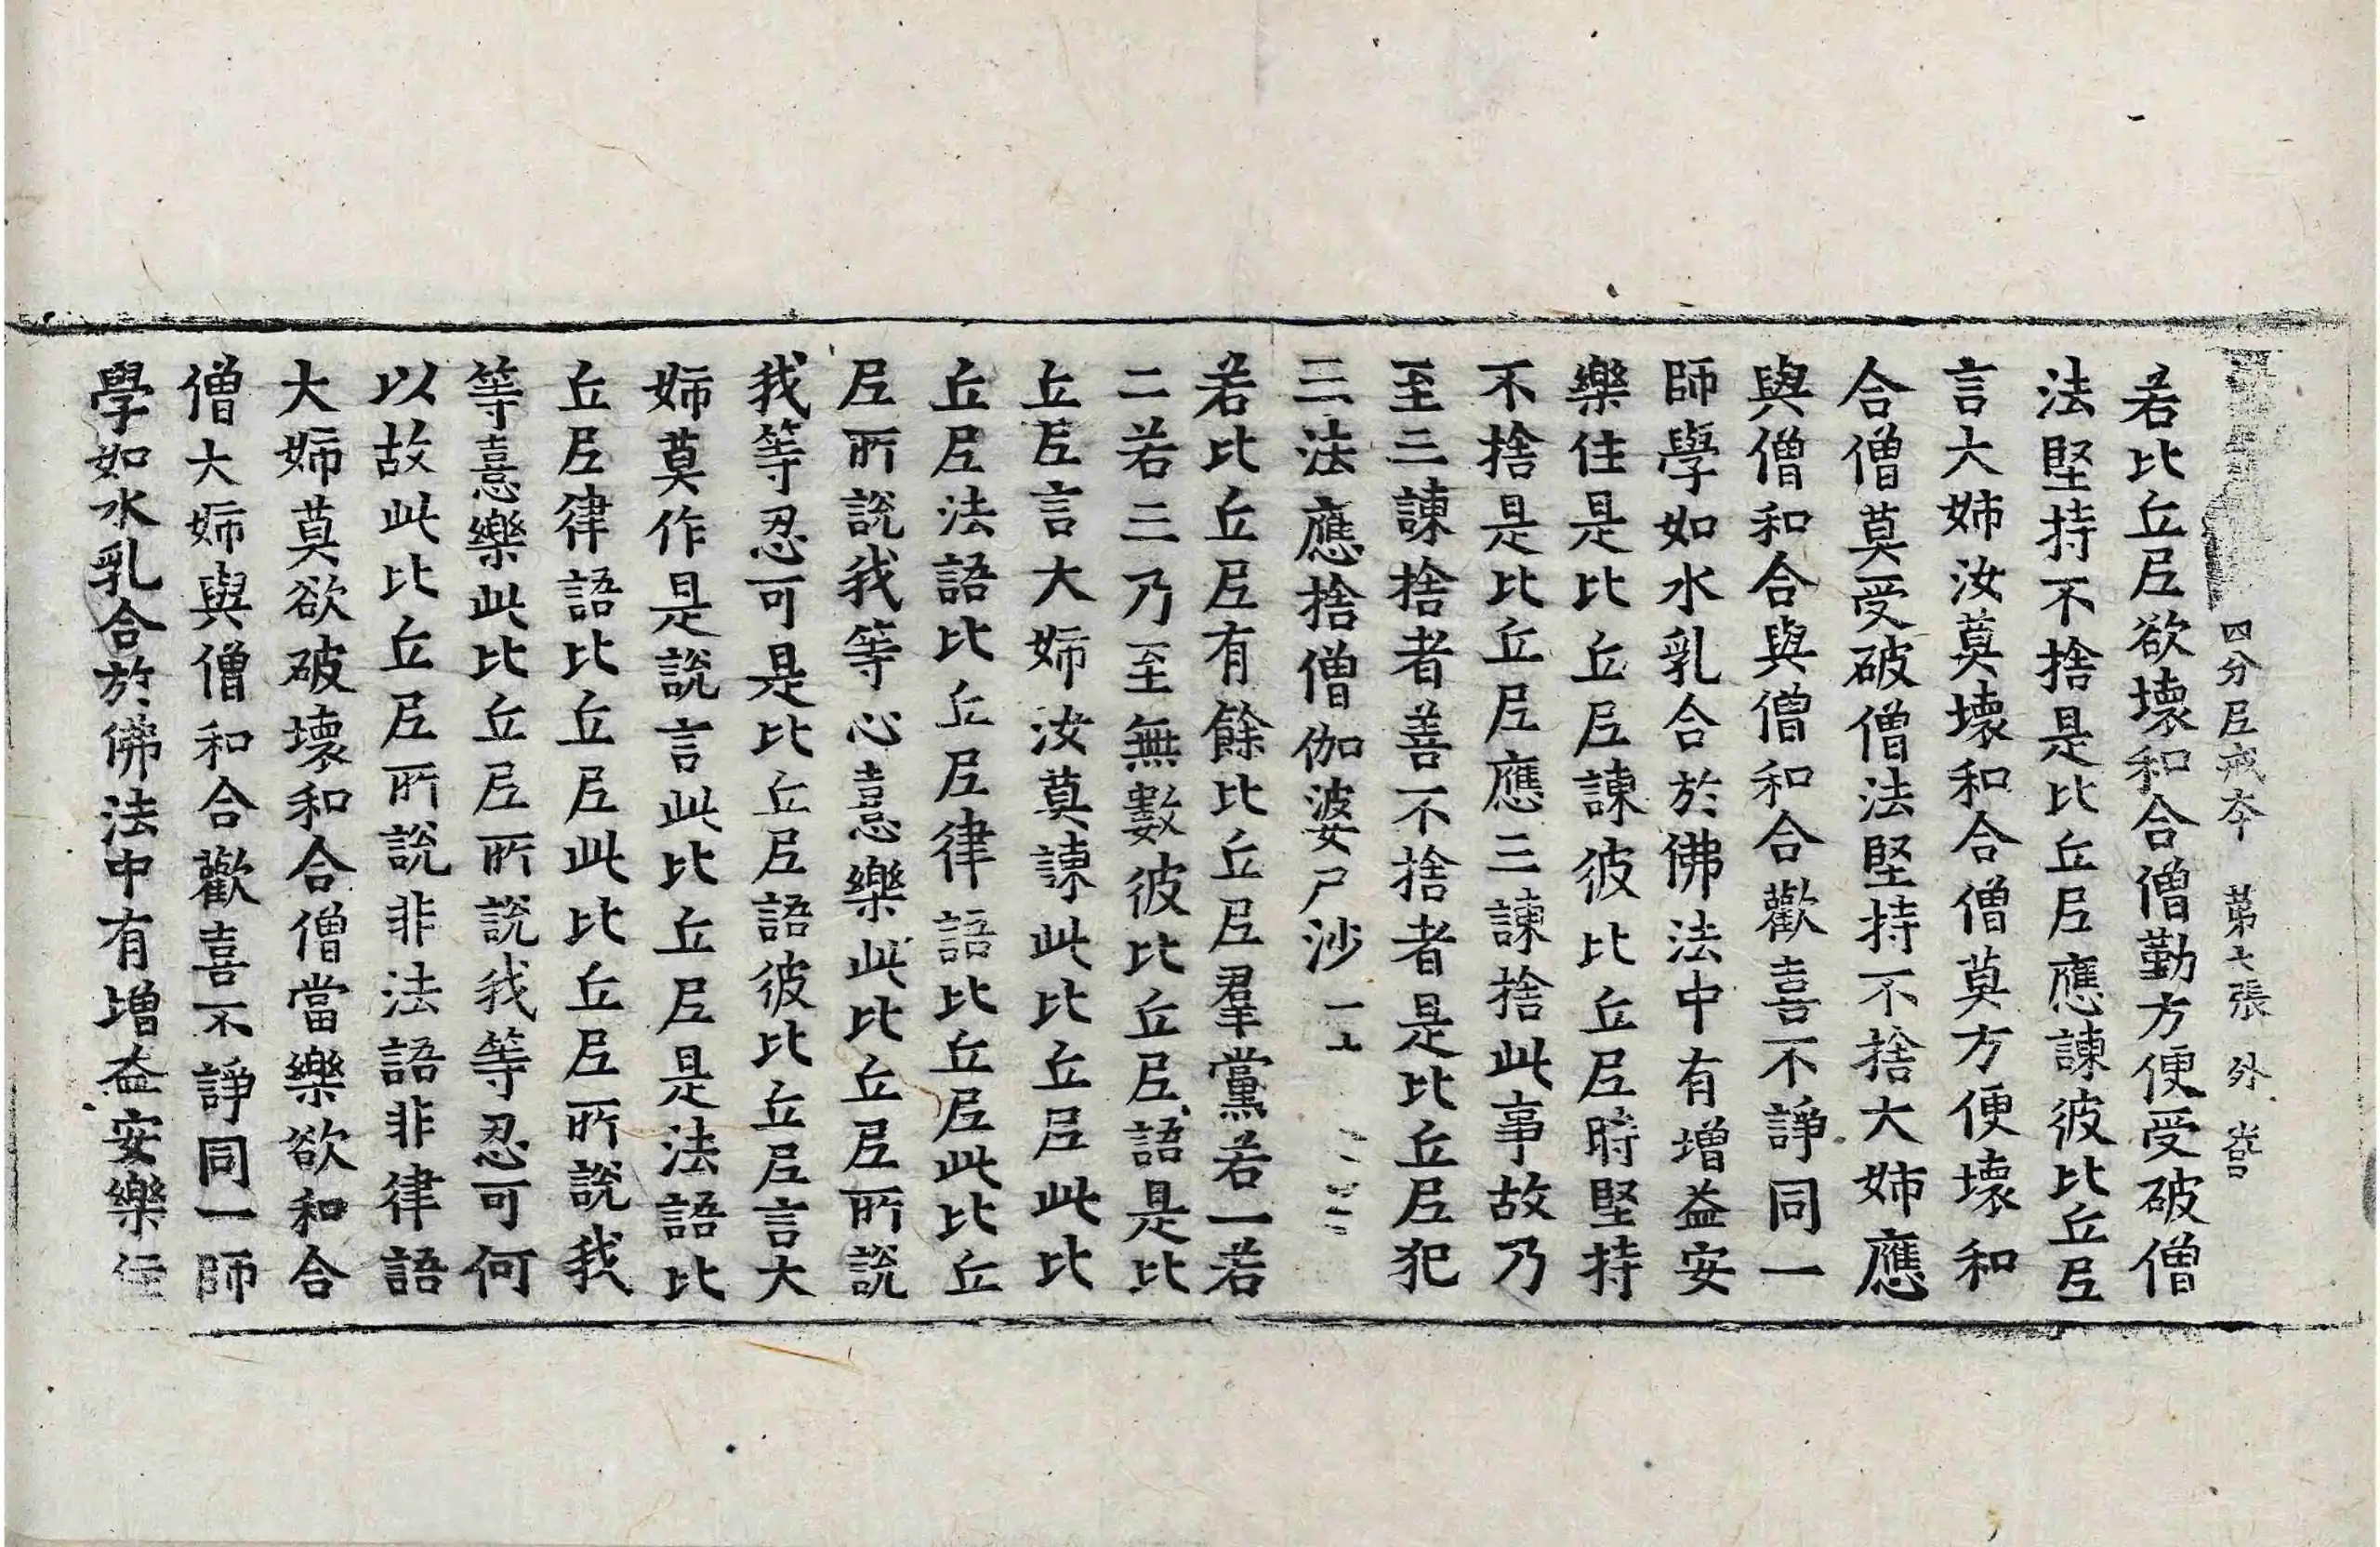 四分尼戒本 第七張 外
若比丘尼欲壞和合僧勤方便受破僧
法堅持不捨是比丘尼應諫彼比丘尼
言大姉汝莫壞和合僧莫方便壞和
合僧莫受破僧法堅持不捨大姉應
與僧和合與僧和合歡喜不諍同一
師學如水乳合於佛法中有增益安
樂住是比丘尼諫彼比丘尼時堅持
不捨是比丘尼應三諫捨此事故乃
至三諫捨者善不捨者是比丘尼犯
三法應捨僧伽婆尸沙
若比丘尼有餘比丘尼羣黨若一若
二若三乃至無數彼比丘尼語是比
丘尼言大姉汝莫諫此比丘尼此比
丘尼法語比丘尼律語比丘尼此比丘
尼所說我等心憙樂此比丘尼所說
我等忍可是比丘尼語彼比丘尼言大
姉莫作是說言此比丘尼是法語比
丘尼律語比丘尼此比丘尼所說我
等憙樂此比丘尼所說我等忍可何
以故此比丘尼所說非法語非律語
大姉莫欲破壞和合僧當樂欲和合
僧大姉與僧和合歡喜不諍同一師
學如水乳合於佛法中有增益安樂住